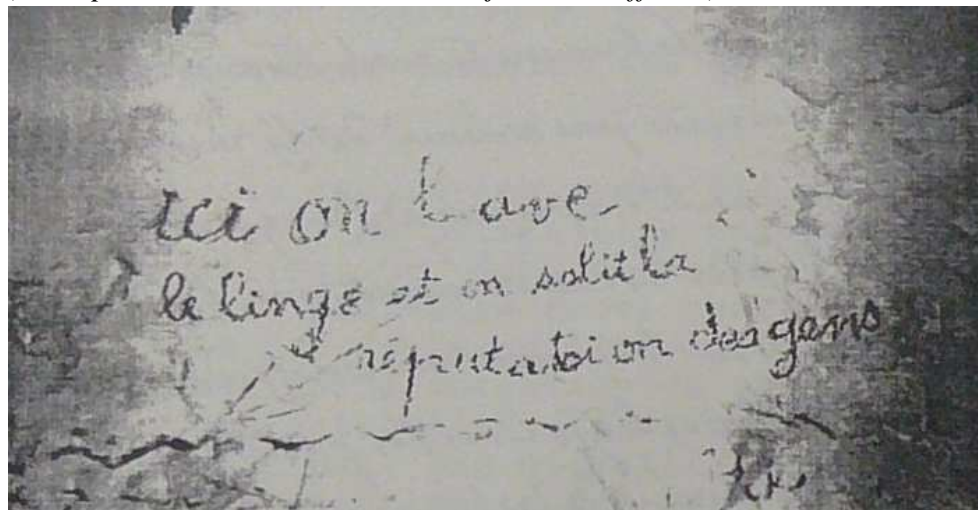 ici on lave
le linge et on salit la
réputation des gens